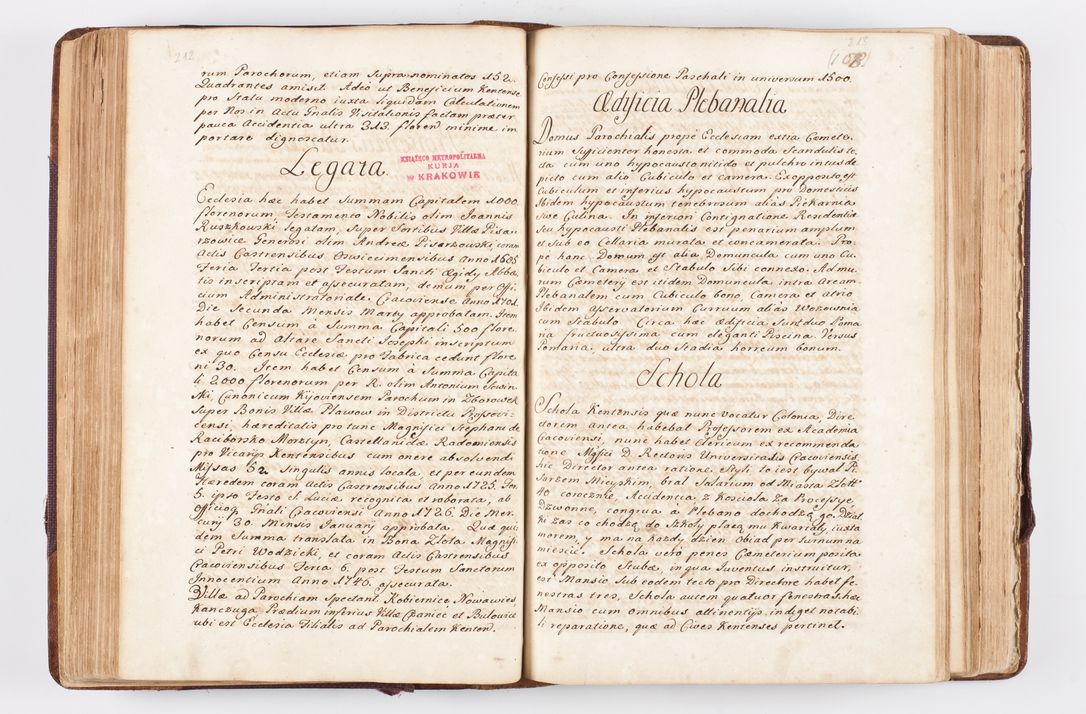 212
rum Parochorum, etiam Supra nominatos 152.
Quadrantes amisit. Adeo ut Beneficium Kentense
pro Statu moderno iuxta liquidam Calculationem
per Nos in Actu Gnalis Visitationis factam præter
pauca Accidentia ultra 313. floren minime im
portare dignoscatur.
Legata.
KSIĄŻĘCO METROPOLITARNA
KURJA
W KRAKOWIE
Ecclesia hæc habet Summam Capitalem 1000
florenorum, Testamento Nobilis olim Joannis
Ruszkowski legatam, super Sortibus Villæ Pisa-
rzowice Generosi olim Andreæ Pisarzowski, coram
Actis Castrensibus Osviecimensibus Anno 1605
Feria Tertia post Festum Sancti Ægidy Abba
tis inscriptam et assecuratam, demum per Offi
cium Administratoriale Cracoviense Anno 1701.
Die Secunda Mensis Marty approbatam. Item
habet Censum à Summa Capitali 500 flore-
norum ad Altare Sancti Josephi inscriptum
ex quo Censu Ecclesiæ pro Fabrica cedunt flore
ni 30. Item habet Censum à Summa Capita
li 2000 florenorum per R. olim Antonium
ski, Canonicum Kijoviensem Parochum in Zborowek
super Bonis Villæ Plawow in Districtu Prossovi-
censi, hæreditalis pro tunc Magnifici Stephani de
Raciborsko Morstyn, Castellanidæ Radomiensis
pro Vicarijs Kentensibus cum onere absolvendi
Missas 52 singulis annis locata, et per eundem
Hæredem coram Actis Castrensibus Anno 1725.
5. ipso Festo S. Luciæ recognita et roborata, ab
Officioq Gnali Cracoviensi Anno 1726. Die Mer-
curij 30. Mensis January approbata. Quæ qui
dem Summa translata in Bona Zlota Magnifi
ci Petri Wodzicki, et coram Actis Castrensibus
Cracoviensibus Feria 6. post Festum Sanctorum
Innocentium Anno 1746. assecurata.
Villæ ad Parochiam spectant Kobiernice Nowawies
Kanczuga Prædium inferius Villæ Czaniec et Bulowice
ubi est Ecclesia Filialis ad Parochialem Kenten.
213
Confessi pro Confessione Paschali in universum 1500.
Ædificia Plebanalia.
Domus Parochialis propè Ecclesiam extra Cœmete-
rium Sufficienter honesta et commoda Scandulis te-
cta cum uno hypocausto nitido et pulchro intus de
picto cum alio Cubiculo et camera. Ex opposito est
Cubiculum et inferius hypocaustum pro Domesticis
Ibidem hypocaustum tenebrosum alias Piekarnia
sive Culina. In inferiori Contignatione Residentiæ
seu hypocausti Plebanalis est penarium amplum
et Sub eo Cellaria murata et concamerata. Pro-
pe hanc Domum est alia Domuncula cum uno Cu-
biculo et Camera et Stabulo Sibi connexo. Ad mu-
rum Cœmetery est itidem Domuncula intra Aream
Plebanalem cum Cubiculo bono, Camera et atrio
Ibidem Asservatorium Curruum alias Wozownia
cum Stabulo. Circa hæc Ædificia Sunt duo Poma
ria fructuosissima cum eleganti Piscina. Versus
Pomaria ultra duo Stadia horreum bonum.
Schola
Schola Kentensis quæ nunc vocatur Colonia, Dire-
ctorem antea habebat Professorem ex Academia
Cracoviensi, nunc habet Clericum ex recommenda
tione Mgfici D. Rectoris Universitatis Cracoviensis
hic Director antea ratione Styli to iest bywal P.
sarzem Mieyskim, bral Salarium od Miasta Zlott
40 corocznie, Accidentia z Kosciola za Processye
Dzwonne, congrua à Plebano dochodzą go. Dziat
ki zas co chodzą do Szkoły placą mu Kwartały iuxta
morem, y ma na kazdy dzien Obiad per turnum na
miescie. Schola verò penes Cœmeterium posita
ex opposito Stubæ, in qua Juventus instruitur,
est Mansio sub eodem tecto pro Directore habet fe-
nestras tres, Schola autem quatuor fenestras hæc
Mansio cum omnibus attinentijs indiget notabi-
li reparatione, quæ ad Cives Kentenses pertinet.